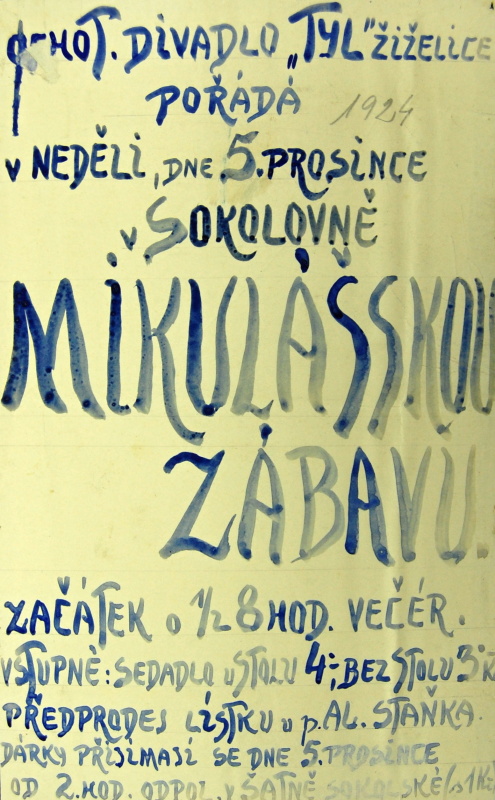 OCHOT. DIVADLO „TYL" ŽIŽELICE
POŘÁDÁ 1924
v NEDĚLI, DNE 5. PROSINCE
v SOKOLOVNĚ
MIKULÁŠSKOU
ZÁBAVU.
ZAČÁTEK o 1/2 8 HOD. VEČÉR.
VSTUPNÉ: SEDADLO u STOLU 4·-, BEZ STOLU 3·- K
PŘEDPRODEJ LÍSTKU u p. AL. STAŇKA.
DÁRKY PŘIJÍMAJÍ SE DNE 5. PROSINCE
OD 2. HOD. ODPOL. v ŠATNĚ SOKOLSKÉ 1 Kč